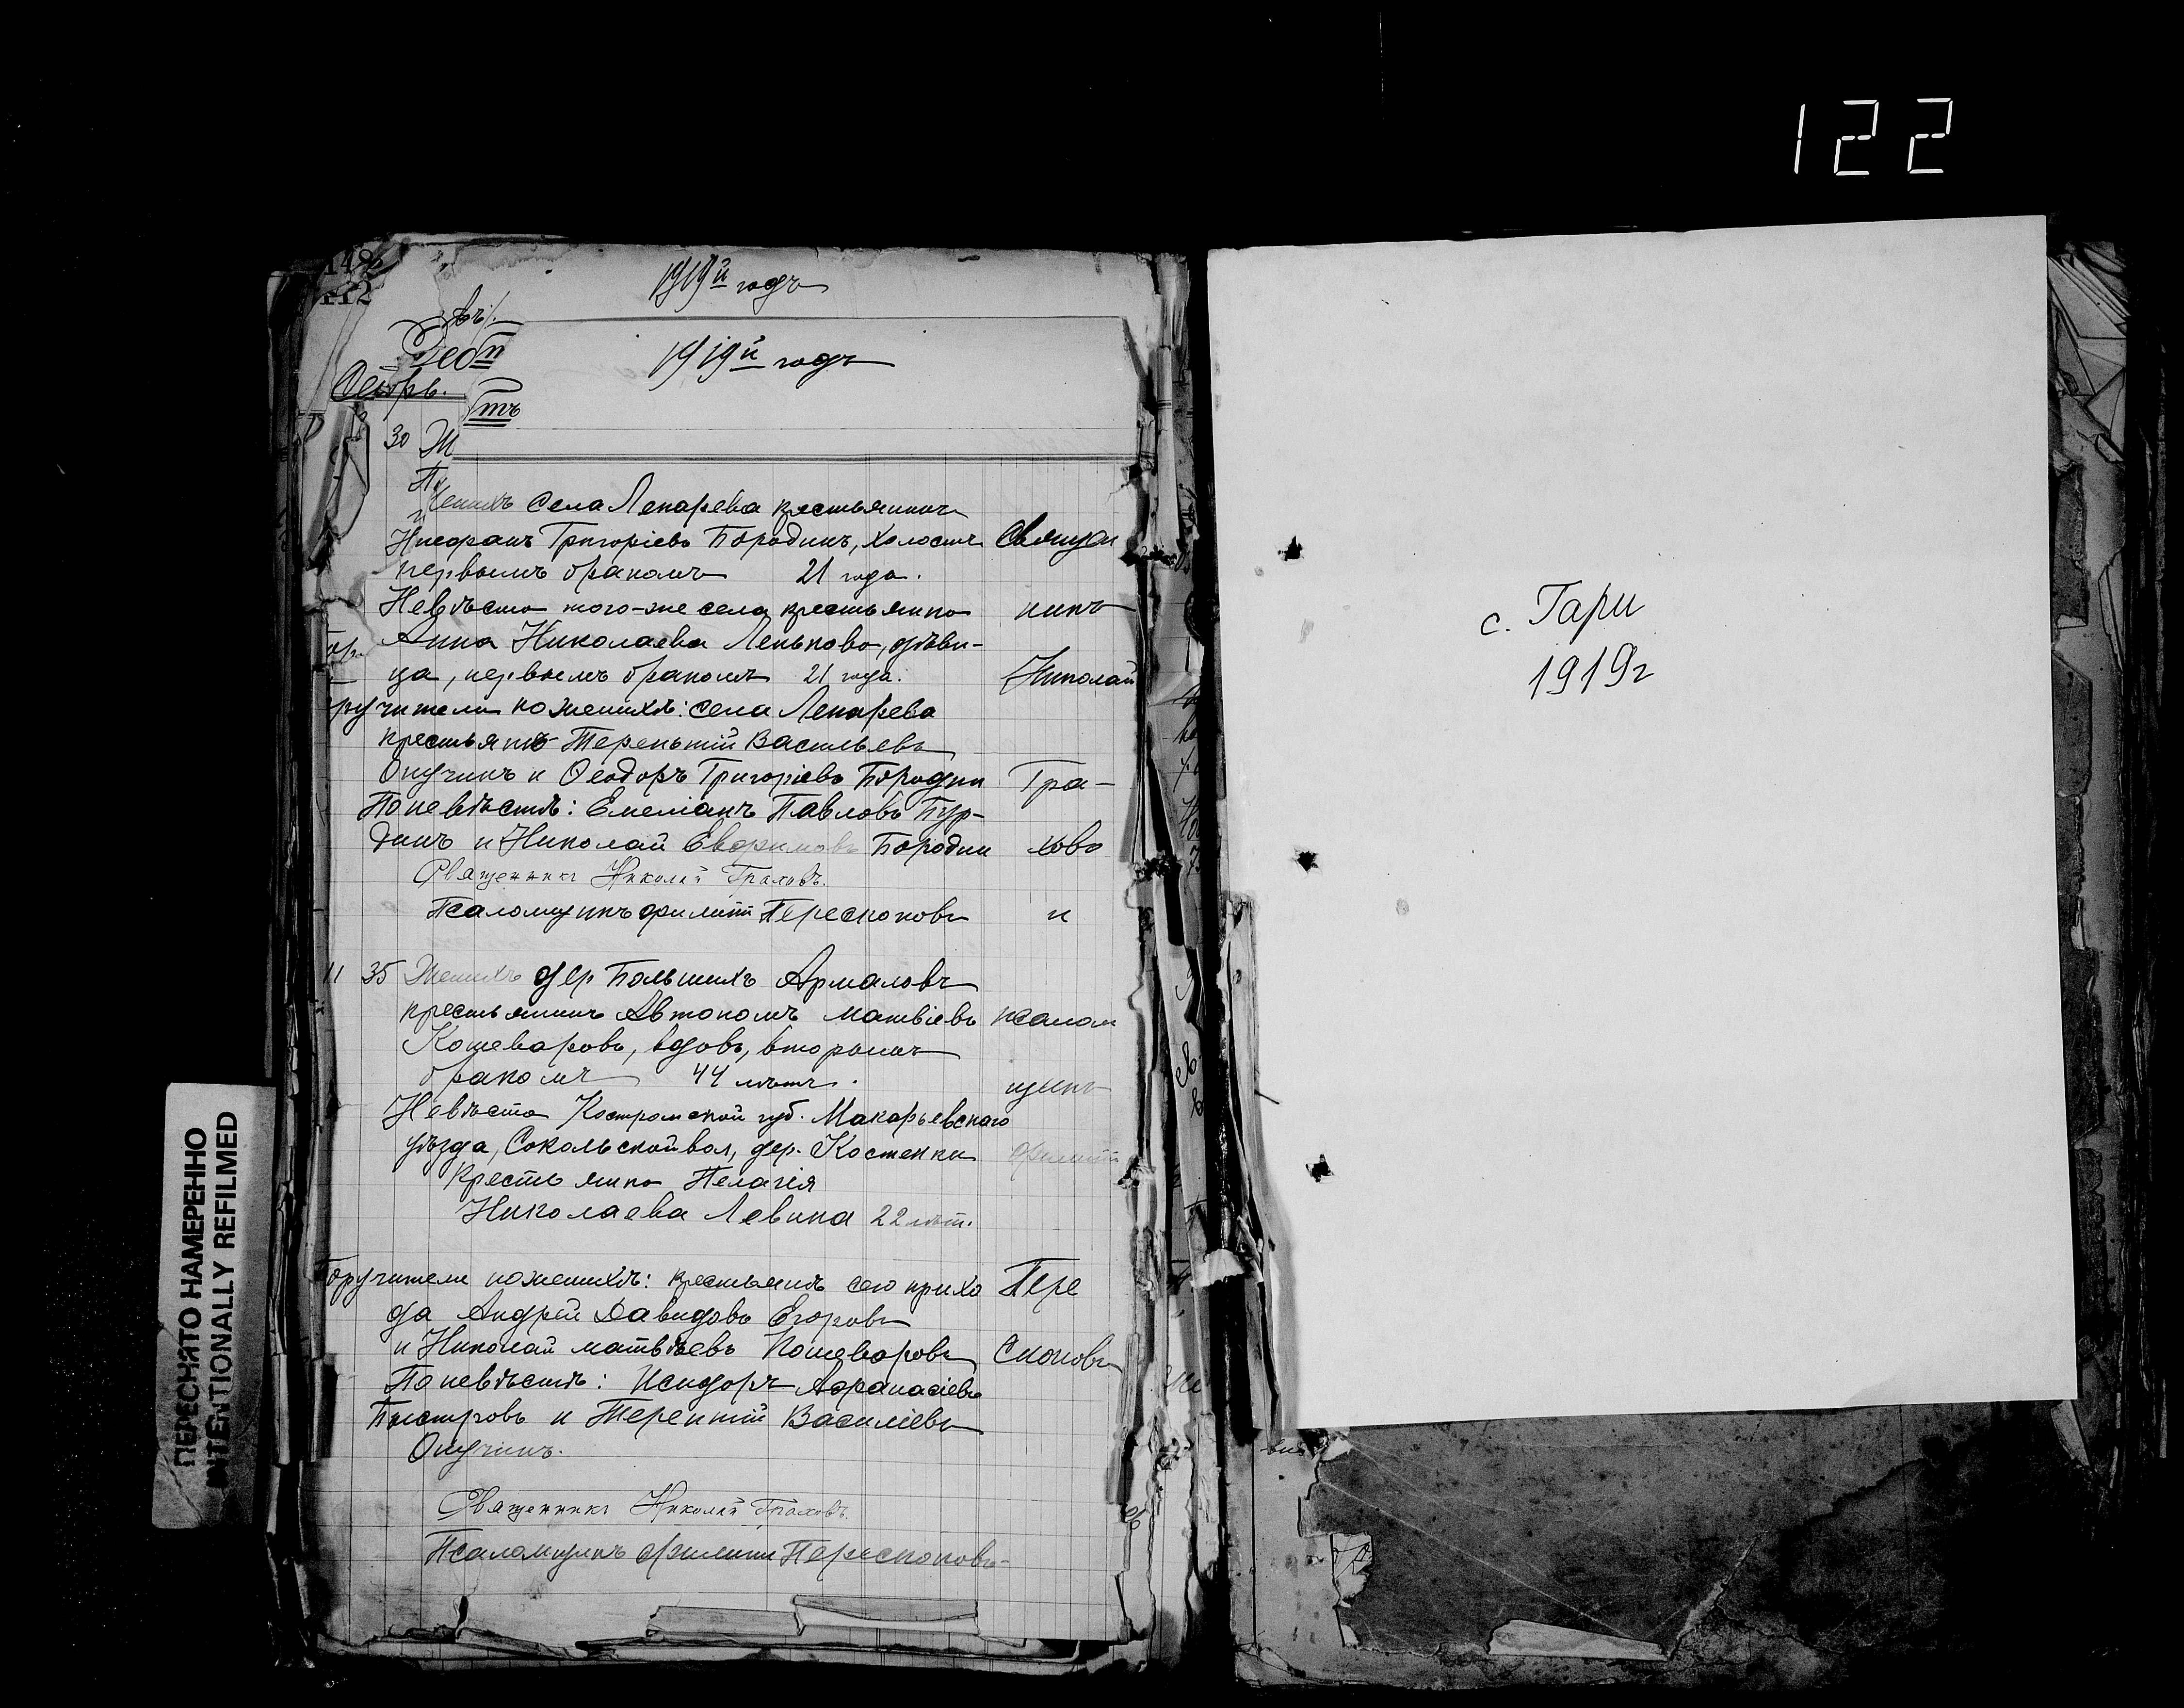 122
1919й годъ
1919й годъ
Октбрь.
30 Ж
Женихъ села Лекарева крестьянинъ
Григорiевъ Бородинъ, холостъ
первымъ бракомъ 21 года.
Невѣста того-же села крестьянка
Анна Николаева Ленькова, дѣви-
ца, первымъ бракомъ 21 года.
ручители по женихѣ: села Лекарева
крестьяне Терентiй Васильевъ
Опучинъ и Ѳеодоръ Григорiевъ Бородин
По невѣстѣ: Емелiанъ Павловъ Бур-
динъ и Николай Евфимовъ Бородин
Священникъ Николай Граховъ.
Псаломщикъ Филиппъ Пересконовъ
Священ
никъ
Николай
Гра-
ховъ
и
псалом
щикъ
Филиппъ
Пере
сконовъ
11 35 Женихъ дер Большихъ Армаловъ
крестьянинъ Автономъ Матвiевъ
Кошеваровъ, вдовъ, вторымъ
бракомъ 44 лѣтъ.
Невѣста Костромской губ. Макарьевскаго
уѣзда, Сокольской вол, дер. Костенки
крестьянка Пелагiя
Николаева Левина 22 лѣт.
Поручители по женихѣ: крестьяне сего прихо
да Андрей Давидовъ Егоровъ
и Николай Матвѣевъ Кошеваровъ
По невѣстѣ: Исидоръ Афанасiевъ
Быстровъ и Терентiй Василiевъ
Опучинъ.
Священникъ Николай Граховъ.
Псаломщикъ Филиппъ Пересконовъ
с. Гари
1919г
ПЕРЕСНЯТО НАМЕРЕННО
INTENTIONALLY REFILMED